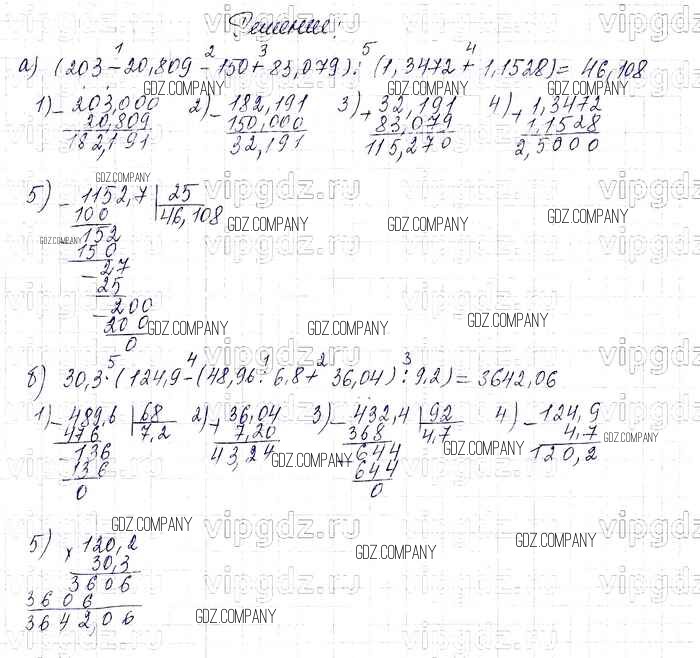 Решение:
1 2 3 5 4
а) (203 - 20,809 - 150 + 83,079) : (1,3472 + 1,1528) = 46,108
1) - 203,000 2) - 182,191 3) + 32,191 4) + 1,3472
20,809 150,000 83,079 1,1528
182,191 32,191 115,270 2,5000
5) - 1152,7 | 25
100 46,108
- 152
150
- 2,7
25
- 200
200
0
5 4 1 2 3
б) 30,3 · (124,9 - (48,96 : 6,8 + 36,04) : 9,2) = 3642,06
1) - 489,6 | 68 2) + 36,04 3) - 432,4 | 92 4) - 124,9
476 7,2 7,20 368 4,7 4,7
- 136 43,24 - 644 120,2
136 644
0 0
5) x 120,2
30,3
3606
3606
3642,06
vipgdz.ru
GDZ.COMPANY